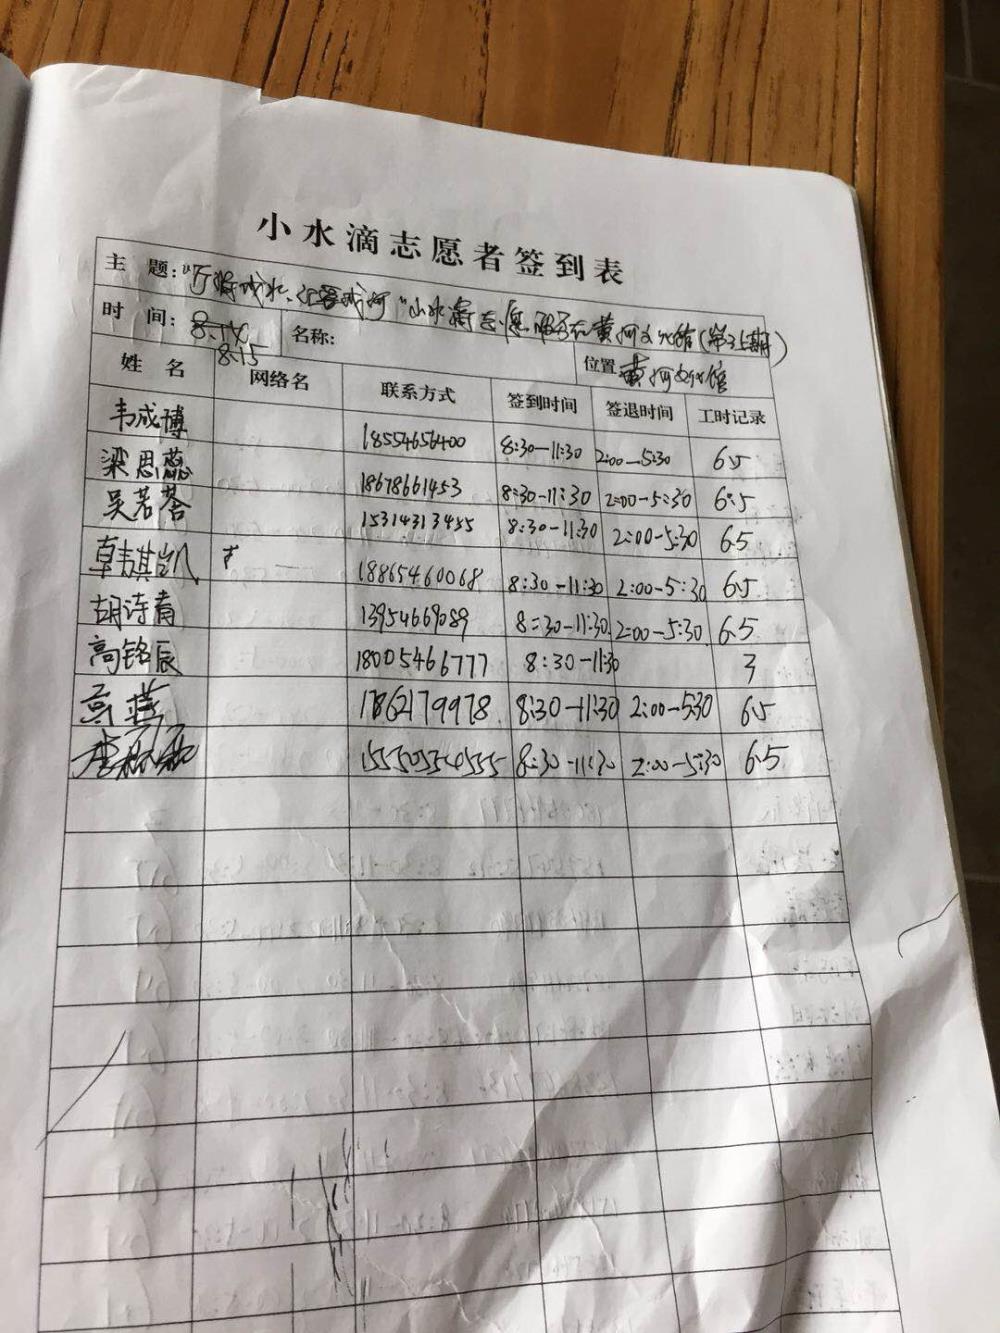 小水滴志愿者签到表
主 题: 志愿服务在黄河文化馆(第35期)
时 间: 8.14 8.15 名称: 位置 黄河文化馆
姓 名 网络名 联系方式 签到时间 签退时间 工时记录
韦成博 18554656400 8:30-11:30 2:00-5:30 6.5
梁思蕊 18678661453 8:30-11:30 2:00-5:30 6.5
吴若荟 15314313455 8:30-11:30 2:00-5:30 6.5
韦其凯 18865460068 8:30-11:30 2:00-5:30 6.5
胡诗青 13954669089 8:30-11:30 2:00-5:30 6.5
高铭辰 18005466777 8:30-11:30 3
17862179978 8:30-11:30 2:00-5:30 6.5
8:30-11:30 2:00-5:30 6.5